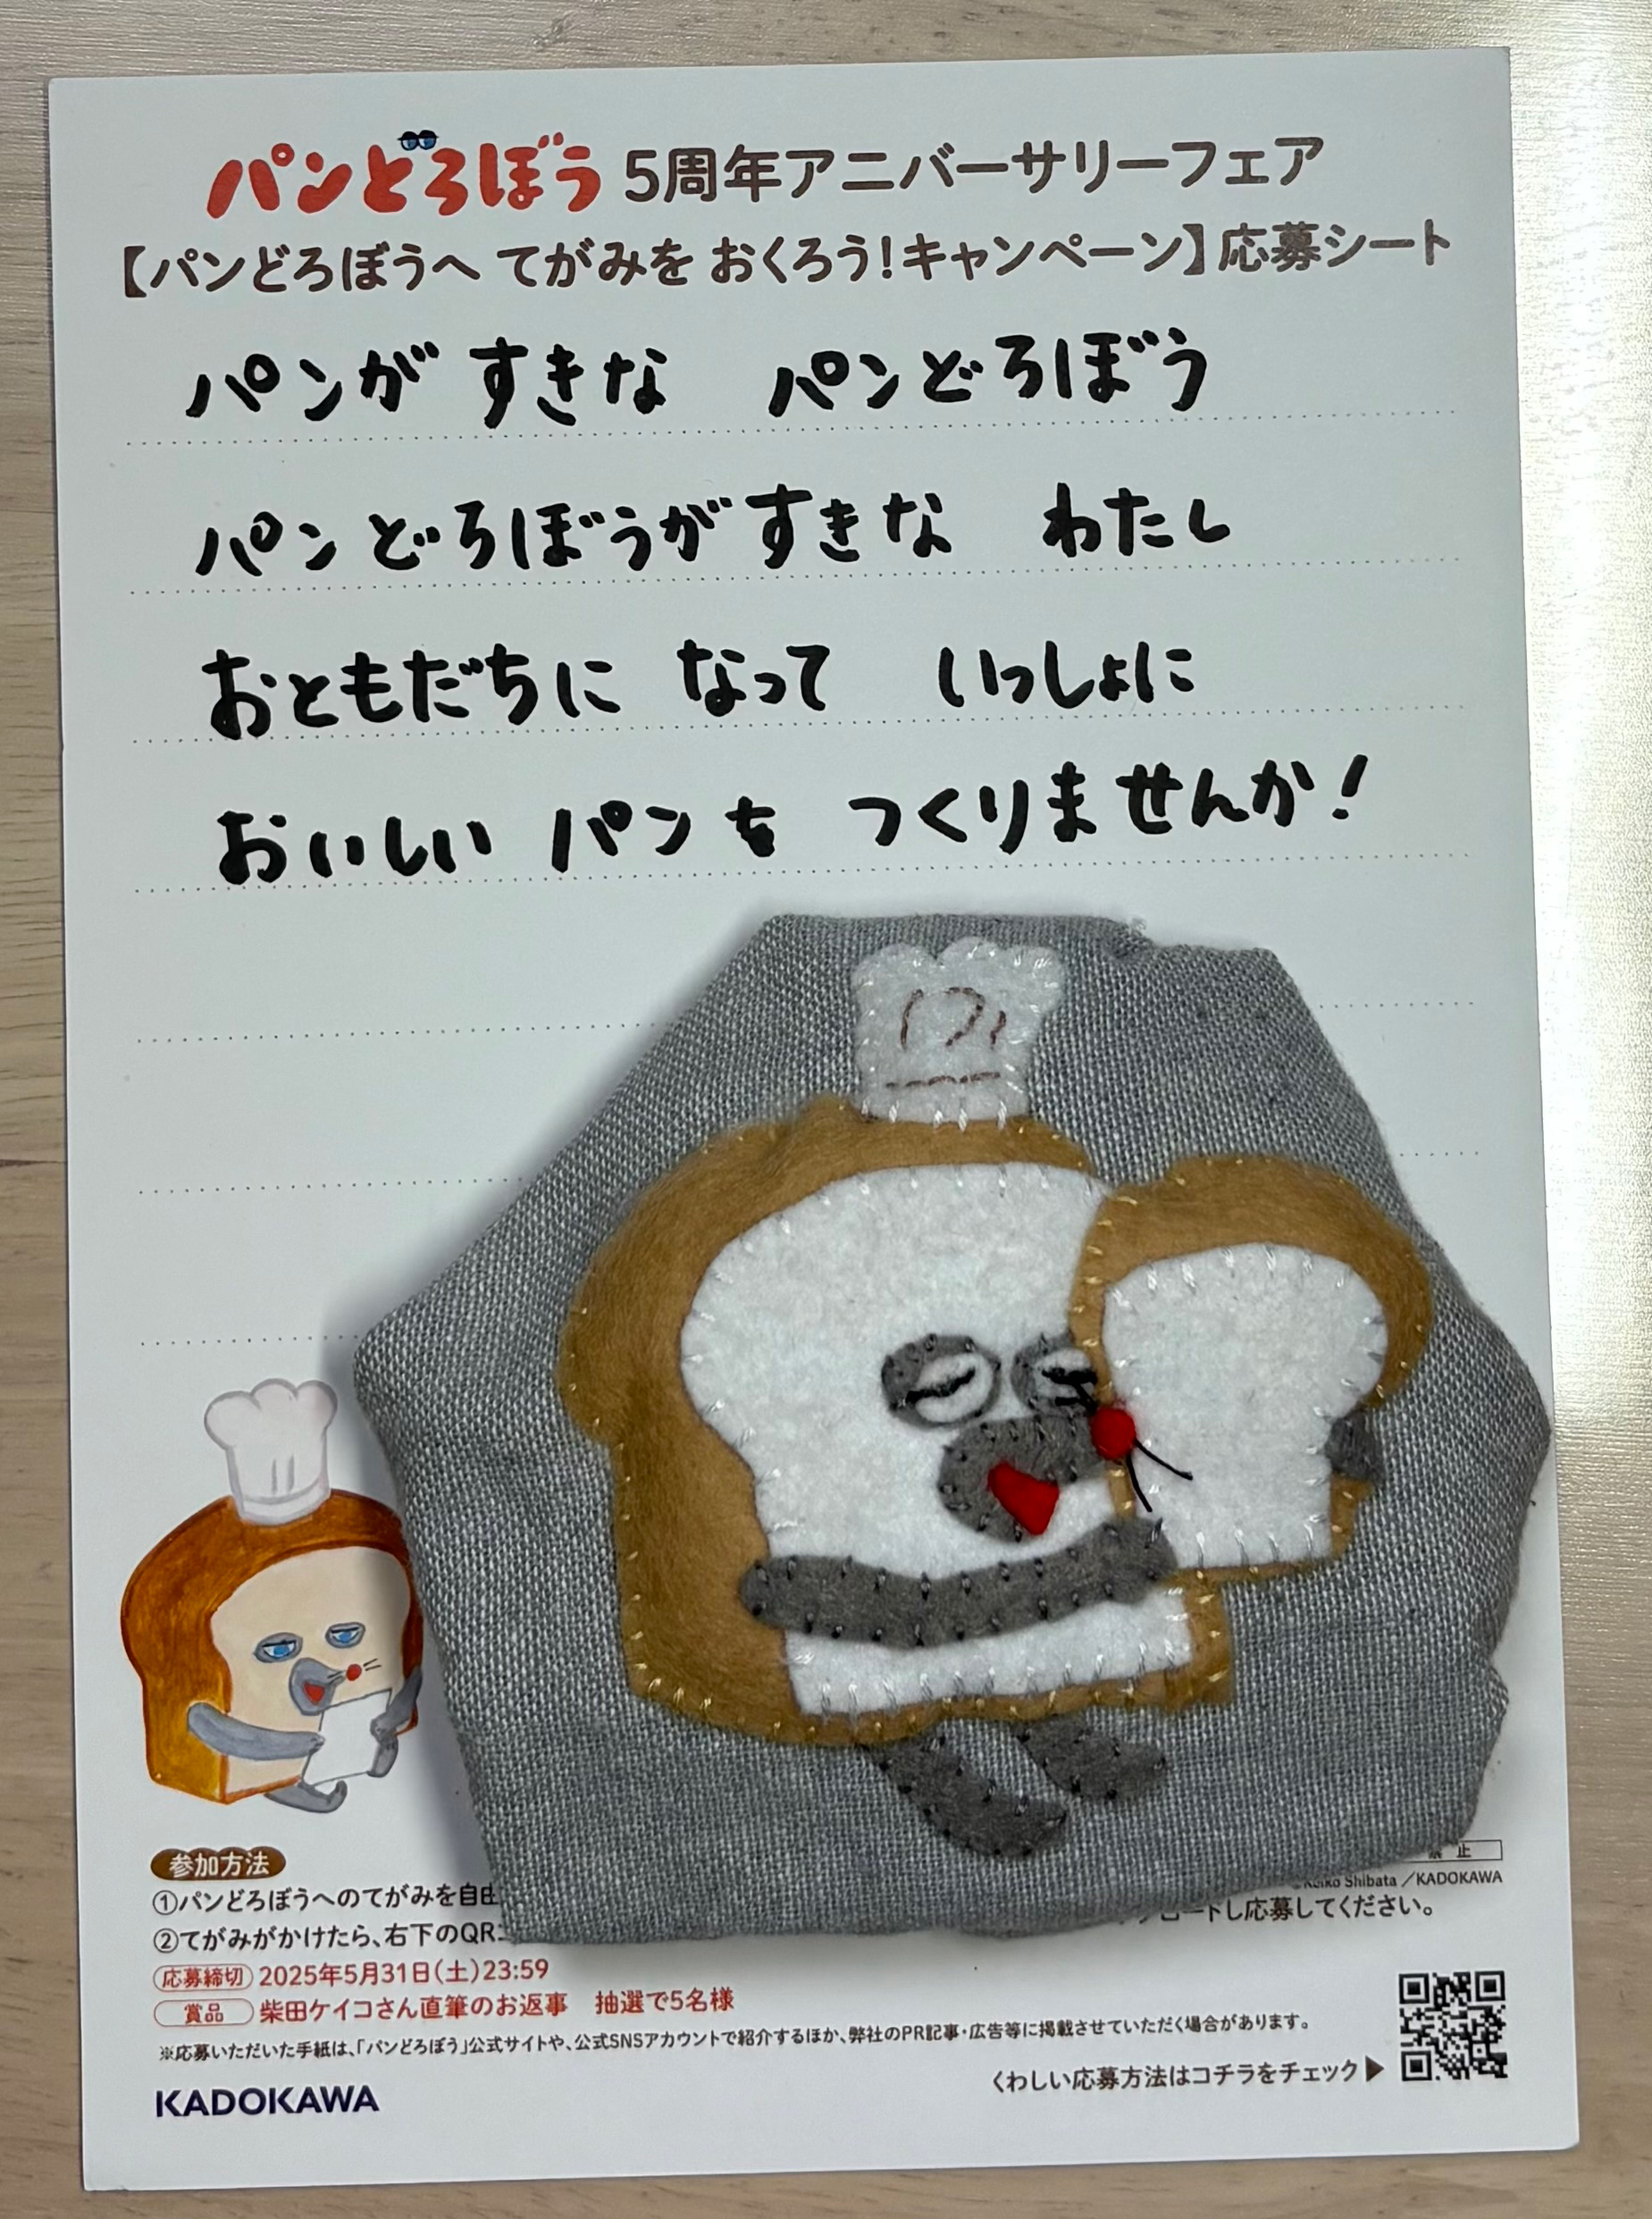 パンどろぼう 5周年アニバーサリーフェア
【パンどろぼうへ てがみを おくろう!キャンペーン】応募シート
パンが すきな パンどろぼう
パンどろぼうがすきな わたし
おともだちに なって いっしょに
おいしい パンを つくりませんか!
パン
参加方法
①パンどろぼうへのてがみを自由
②てがみがかけたら、右下のQR
禁止
Keiko Shibata／KADOKAWA
ードし応募してください。
応募締切 2025年5月31日(土)23:59
賞品 柴田ケイコさん直筆のお返事 抽選で5名様
※応募いただいた手紙は、「パンどろぼう」公式サイトや、公式SNSアカウントで紹介するほか、弊社のPR記事・広告等に掲載させていただく場合があります。
くわしい応募方法はコチラをチェック▶
KADOKAWA